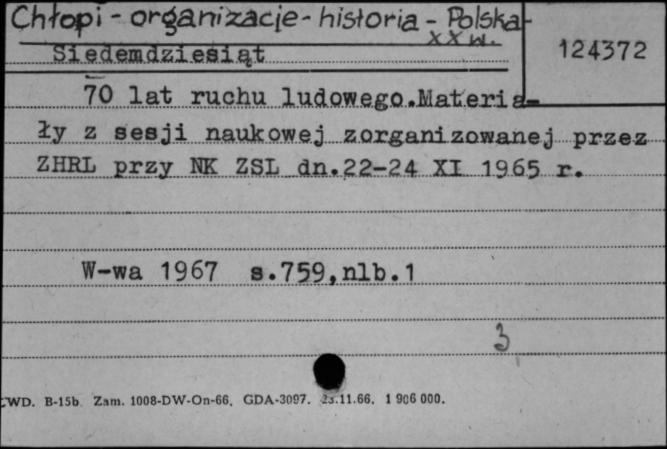 Chłopi - organizacje - historia - Polska -
XX w.
124372
Siedemdziesiąt
70 lat ruchu ludowego.Materia-
ły z sesji naukowej zorganizowanej przez
ZHRL przy NK ZSL dn.22-24 XI 1965 r.
W-wa 1967 s.759,nlb.1
3
CWD. B-15b. Zam. 1008-DW-On-66. GDA-3097. 23.11.66. 1 906 000.